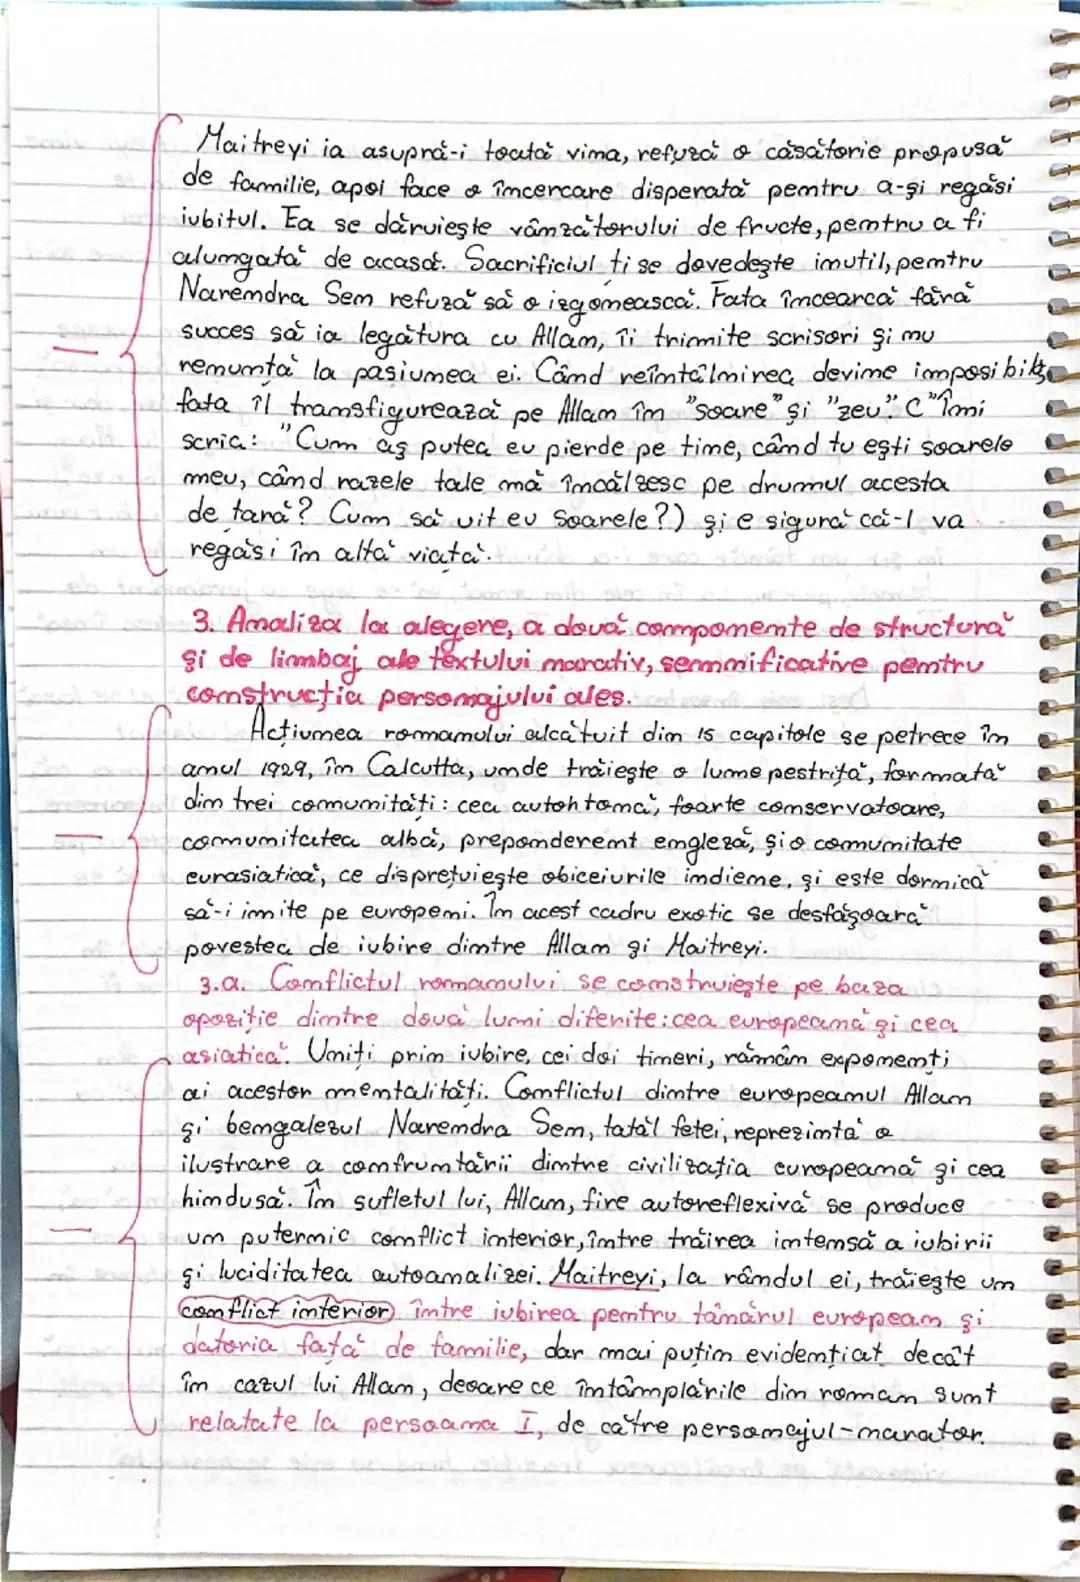 Maitreyi ia asupră-i toată vina, refuză o căsătorie propusă
de familie, apoi face o încercare disperată pentru a-și regăsi
iubitul. Ea se dăruiește vânzătorului de fructe, pentru a fi
alungată de acasă. Sacrificiul ti se dovedește inutil, pentru
Narendra Sen refuză să o izgonească. Fata încearcă fără
succes să ia legătura cu Allan, îi trimite scrisori și nu
renunță la pasiunea ei. Când reîntâlnirea devine imposibilă,
fata îl transfigurează pe Allan în "soare" și "zeu". ("Îmi
scria: "Cum aș putea eu pierde pe tine, când tu ești soarele
meu, când razele tale mă încălzesc pe drumul acesta
de țară? Cum să uit eu Soarele?) și e sigură că-l va
regăsi în altă viață.
3. Analiza la alegere, a două componente de structură
și de limbaj ale textului narativ, semnificative pentru
construcția personajului ales.
Acțiunea romanului alcătuit din 15 capitole se petrece în
anul 1929, în Calcutta, unde trăiește o lume pestriță, formată
din trei comunități: cea autohtonă, foarte conservatoare,
comunitatea albă, preponderent engleză, și o comunitate
eurasiatică, ce disprețuiește obiceiurile indiene, și este dornică
să-i imite pe europeni. În acest cadru exotic se desfășoară
povestea de iubire dintre Allan și Maitreyi.
3.a. Conflictul romanului se construiește pe baza
opoziție dintre două lumi diferite: cea europeană și cea
asiatică. Uniți prin iubire, cei doi tineri, rămân exponenți
ai acestor mentalități. Conflictul dintre europeanul Allan
și bengalezul Narendra Sen, tatăl fetei, reprezintă o
ilustrare a confruntării dintre civilizația europeană și cea
hindusă. În sufletul lui, Allan, fire autoreflexivă se produce
un puternic conflict interior, între trăirea intensă a iubirii
și luciditatea autoanalizei. Maitreyi, la rândul ei, trăiește un
conflict interior între iubirea pentru tânărul european și
datoria față de familie, dar mai puțin evidențiat decât
în cazul lui Allan, deoarece întâmplările din roman sunt
relatate la persoana I, de către personajul-narator.